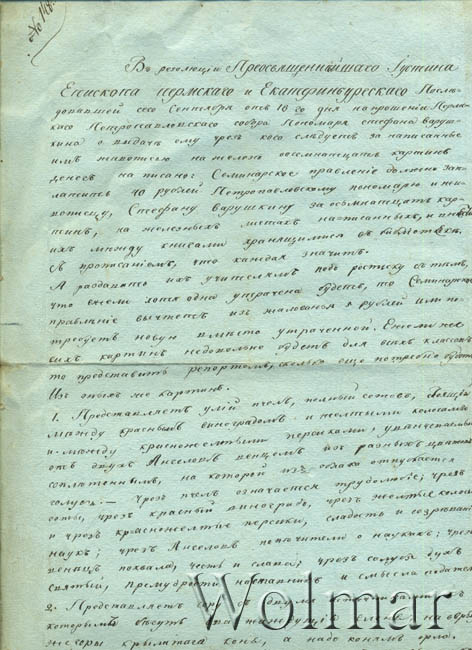 № 148.
Въ резолюціи Преосвященнѣйшаго Іустина
Епископа Пермскаго и Екатеринбургскаго Послѣ-
довавшей сего Сентября отъ 18го дня на прошеніи Перм-
скаго Петропавловскаго собора Пономаря Стефана Вару-
кина о выдачѣ ему чрезъ кого слѣдуетъ за написанные
имъ живописью на желѣзѣ осемнатцать картинъ
денегъ написано: Семинарское правленіе должно за-
платить 40 рублей Петропавловскому пономарю и
вописцу, Стефану Варушкину за осмнатцать кар-
тинъ, на желѣзныхъ листахъ написанныхъ, и
ихъ между книгами хранящимися въ библіотекѣ,
съ прописаніемъ, что каждая значитъ.
А раздавать ихъ учителямъ подъ росписку съ тѣмъ,
что ежели хотя одна утрачена будетъ, то Семинарское
правленіе вычтетъ изъ жалованья 5 рублей или по-
требуетъ новую вмѣсто утраченной. Ежели же
сихъ картинъ недовольно будетъ для всѣхъ классовъ
то представить репортомъ, сколько еще потребно будетъ
Изъ оныхъ же картинъ.
1. Представляетъ улій пчелъ, полный сотовъ, стоящій
между краснымъ виноградомъ и желтыми колосами
и между красножелтыми персиками, увѣнчаемый
отъ двухъ Ангеловъ вѣнцемъ изъ разныхъ цвѣтовъ
сплѣтеннымъ, на которой изъ облака опускается
голубь: — чрезъ пчелъ означается трудолюбіе; чрезъ
соты, чрезъ красный виноградъ, чрезъ желтые колосы
и чрезъ красножелтые персики, сладость и созрѣваніе
наукъ; чрезъ Ангеловъ попечители о наукахъ; чрезъ
вѣнецъ похвала, честь и слава; чрезъ голубя духъ
святый, премудрости наставникъ и смысла податель
2. Представляетъ гору съ двумя
которымъ бѣгутъ
же горы крылатаго коня, а надъ конемъ орла.
Wolmar